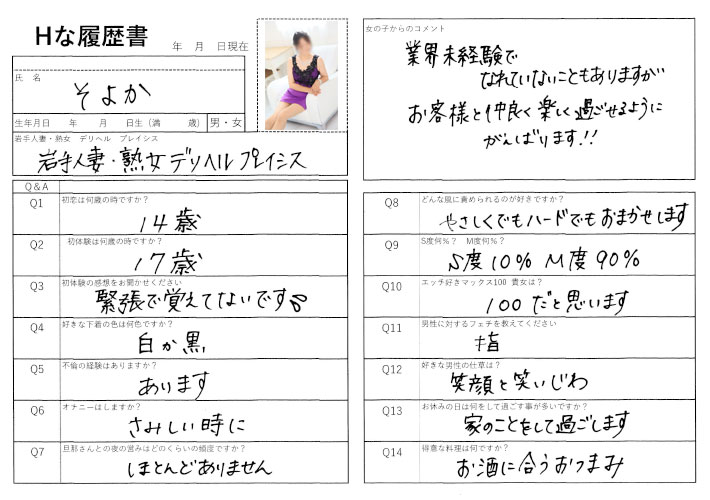 Hな履歴書
年 月 日現在
氏 名
そよか
生年月日 年 月 日生(満 歳) 男・女
岩手人妻・熟女 デリヘル プレイシス
岩手人妻・熟女デリヘルプレイシス
Q&A
Q1 初恋は何歳の時ですか?
14歳
Q2 初体験は何歳の時ですか?
17歳
Q3 初体験の感想をお聞かせください
緊張で覚えてないです
Q4 好きな下着の色は何色ですか?
白か黒
Q5 不倫の経験はありますか?
あります
Q6 オナニーはしますか?
さみしい時に
Q7 旦那さんとの夜の営みはどのくらいの頻度ですか?
ほとんどありません
女の子からのコメント
業界未経験で
なれていないこともありますが
お客様と仲良く楽しく過ごせるように
がんばります!!
Q8 どんな風に責められるのが好きですか?
やさしくでもハードでもおまかせします
Q9 S度何%? M度何%?
S度10% M度90%
Q10 エッチ好きマックス100 貴女は?
100だと思います
Q11 男性に対するフェチを教えてください
指
Q12 好きな男性の仕草は?
笑顔と笑いじわ
Q13 お休みの日は何をして過ごす事が多いですか?
家のことをして過ごします
Q14 得意な料理は何ですか?
お酒に合うおつまみ